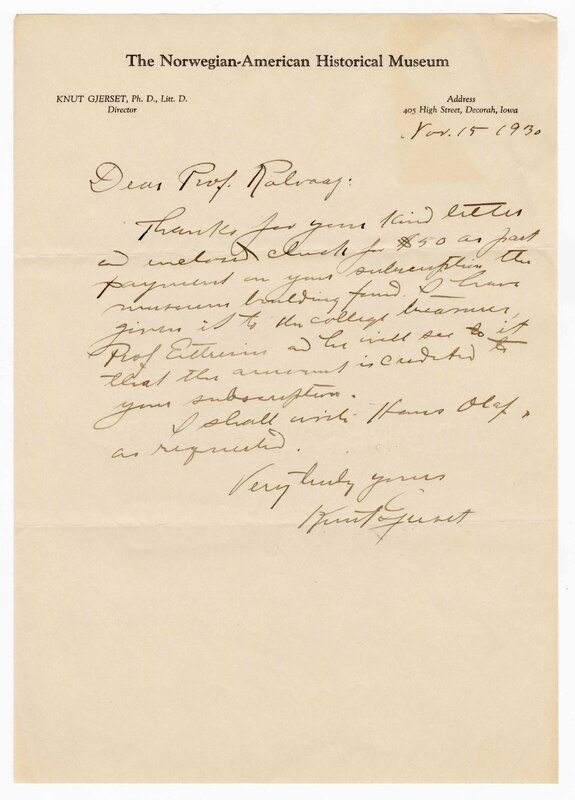 The Norwegian-American Historical Museum
KNUT GJERSET, Ph. D., Litt. D.
Director
Address
405 High Street, Decorah, Iowa
Nov. 15 1930
Dear Prof. Rolvaag:
Thanks for your kind letter
and enclosed check for $50 as part
payment on your subscription the
museum building fund. I have
given it to the college treasurer,
Prof. and he will see to it
that the amount is credited to
your subscription.
I shall write Hans Olaf,
as requested.
Very truly yours
Knut Gjerset